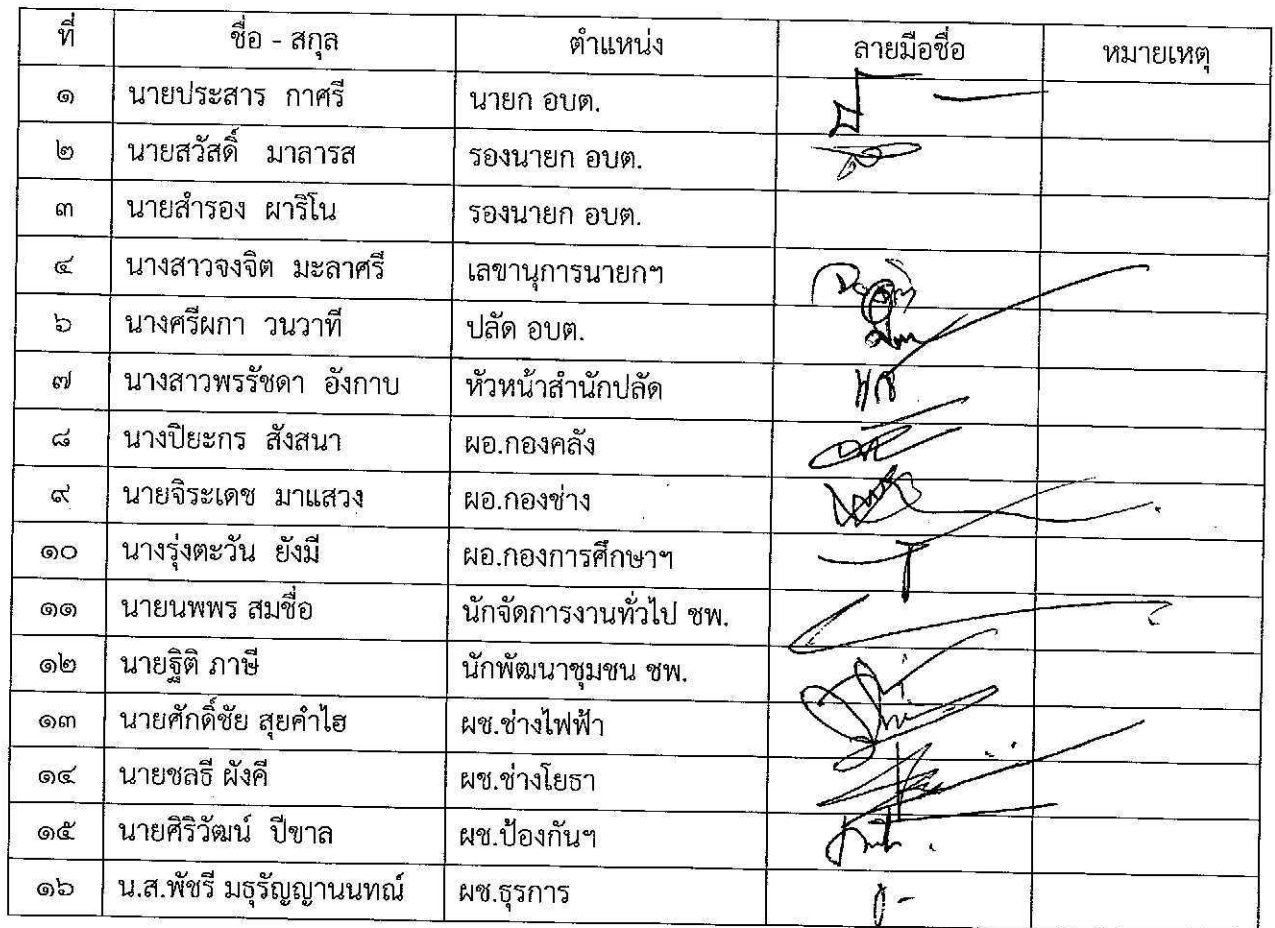 ที่ ชื่อ - สกุล ตำแหน่ง ลายมือชื่อ หมายเหตุ
๑ นายประสาร กาศรี นายก อบต.
๒ นายสวัสดิ์ มาลารส รองนายก อบต.
๓ นายสำรอง ผาริโน รองนายก อบต.
๔ นางสาวจงจิต มะลาศรี เลขานุการนายกฯ
๖ นางศรีผกา วนวาที ปลัด อบต.
๗ นางสาวพรรัชดา อังกาบ หัวหน้าสำนักปลัด
๘ นางปิยะกร สังสนา ผอ.กองคลัง
๙ นายจิระเดช มาแสวง ผอ.กองช่าง
๑๐ นางรุ่งตะวัน ยังมี ผอ.กองการศึกษาฯ
๑๑ นายนพพร สมชื่อ นักจัดการงานทั่วไป ชพ.
๑๒ นายฐิติ ภาษี นักพัฒนาชุมชน ชพ.
๑๓ นายศักดิ์ชัย สุยคำไฮ ผช.ช่างไฟฟ้า
๑๔ นายชลธี ผังคี ผช.ช่างโยธา
๑๕ นายศิริวัฒน์ ปีขาล ผช.ป้องกันฯ
๑๖ น.ส.พัชรี มธุรัญญานนทณ์ ผช.ธุรการ